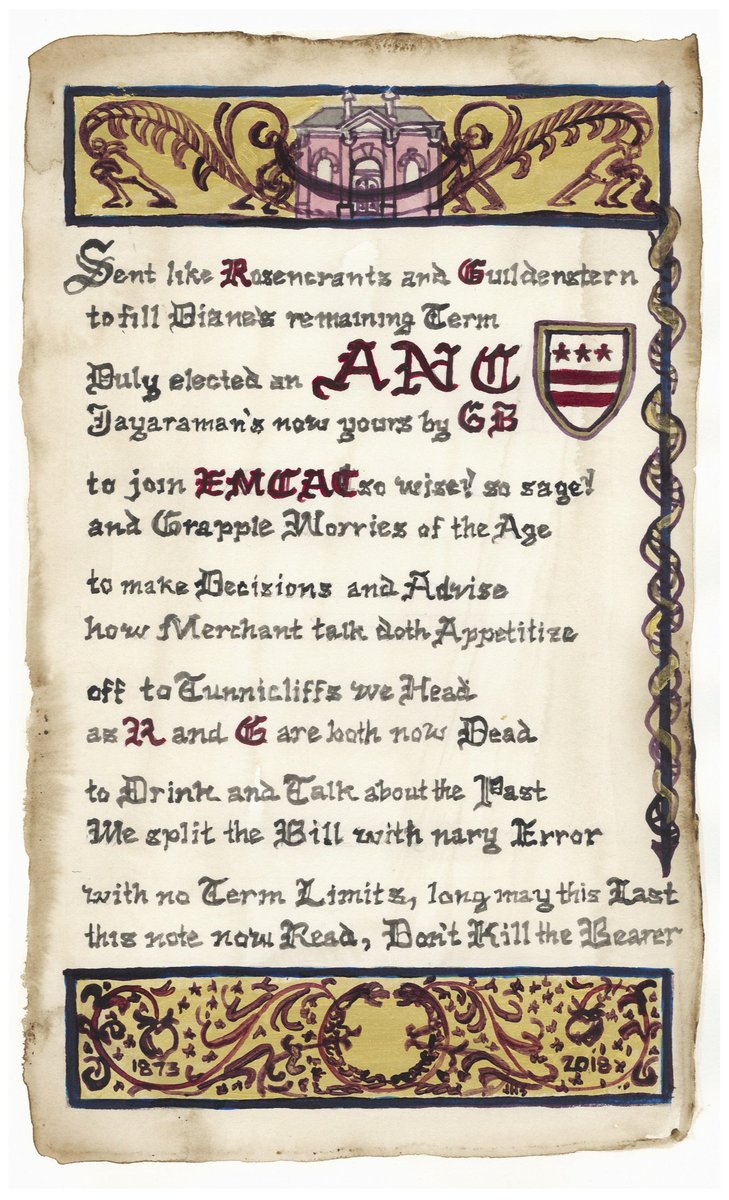 Sent like Rosencrants and Guildenstern
to fill Diane's remaining Term
Duly elected an ANC
Jayaraman's now yours by GB
to join EMCAC so wise! so sage!
and Grapple Worries of the Age
to make Decisions and Advise
how Merchant talk doth Appetitize
off to Tunnicliffs we Head
as R and G are both now Dead
to Drink and Talk about the Past
We split the Bill with nary Error
with no Term Limits, long may this Last
this note now Read, Don't Kill the Bearer
1873 2018